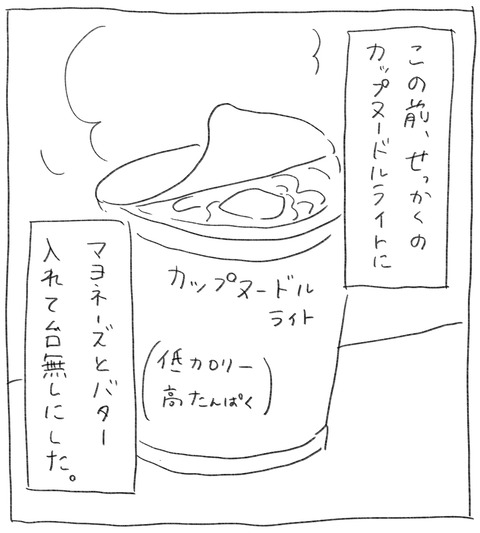 この前、せっかくの
カップヌードルライトに
カップヌードル
ライト
(低カロリー
高たんぱく)
マヨネーズとバター
入れて台無しにした。